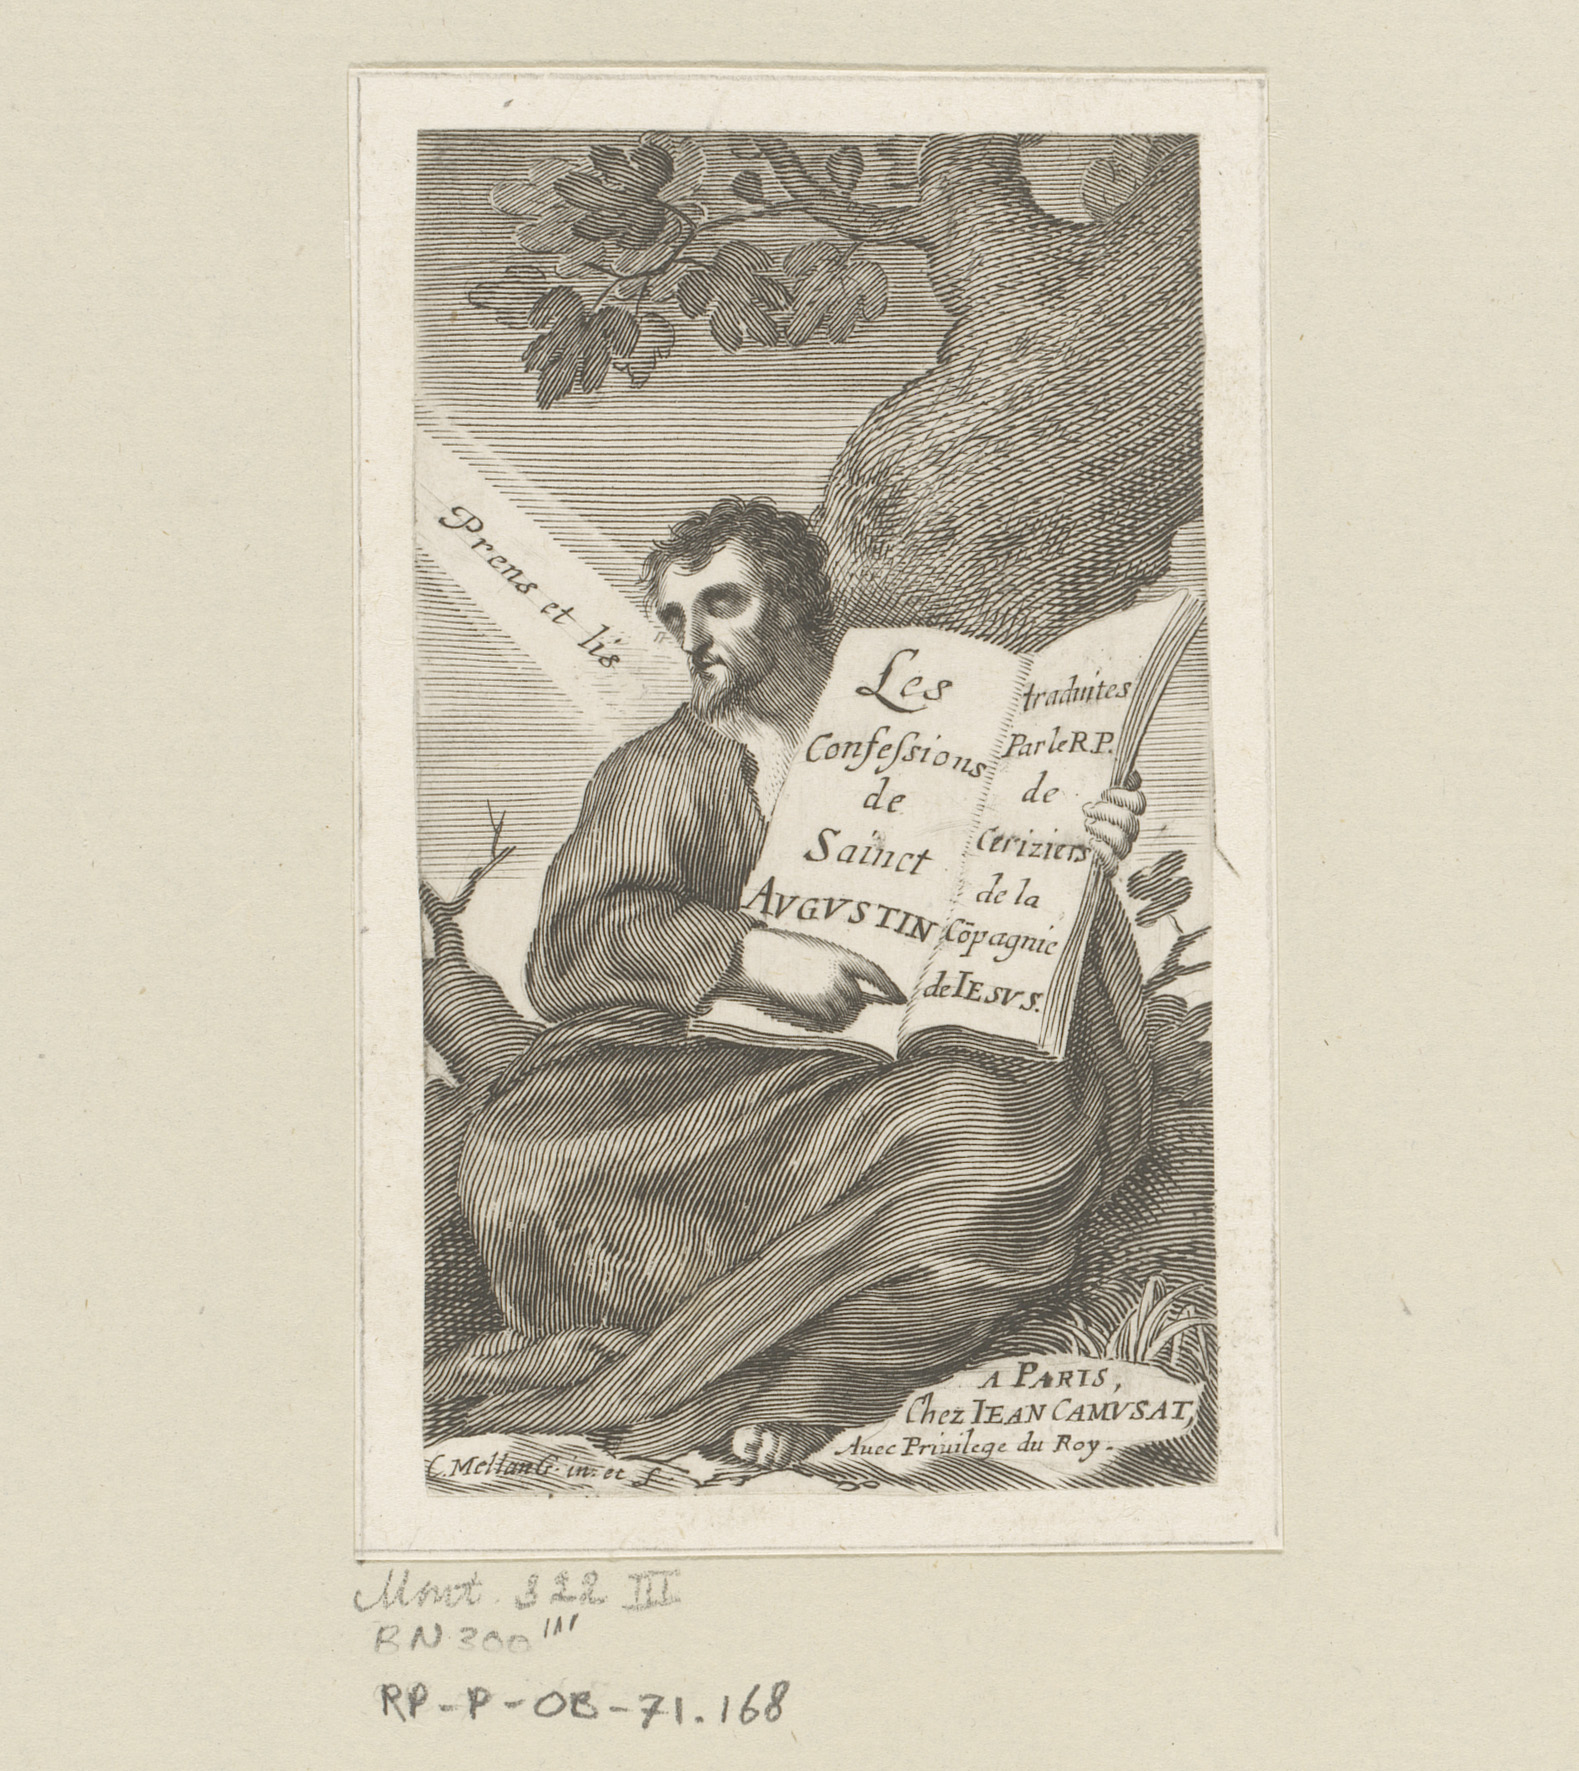 Prens et lis
Les
Confeſsions
de
Sainct
AVGVSTIN
traduites
Par le R.P.
de
Ceriziers
de la
Cōpagnie
de IESVS.
A PARIS,
Chez IEAN CAMVSAT,
Auec Priuilege du Roy.
C. Mellan G. in. et f.
Mont. 322 III
BN 300 III
RP-P-OB-71.168